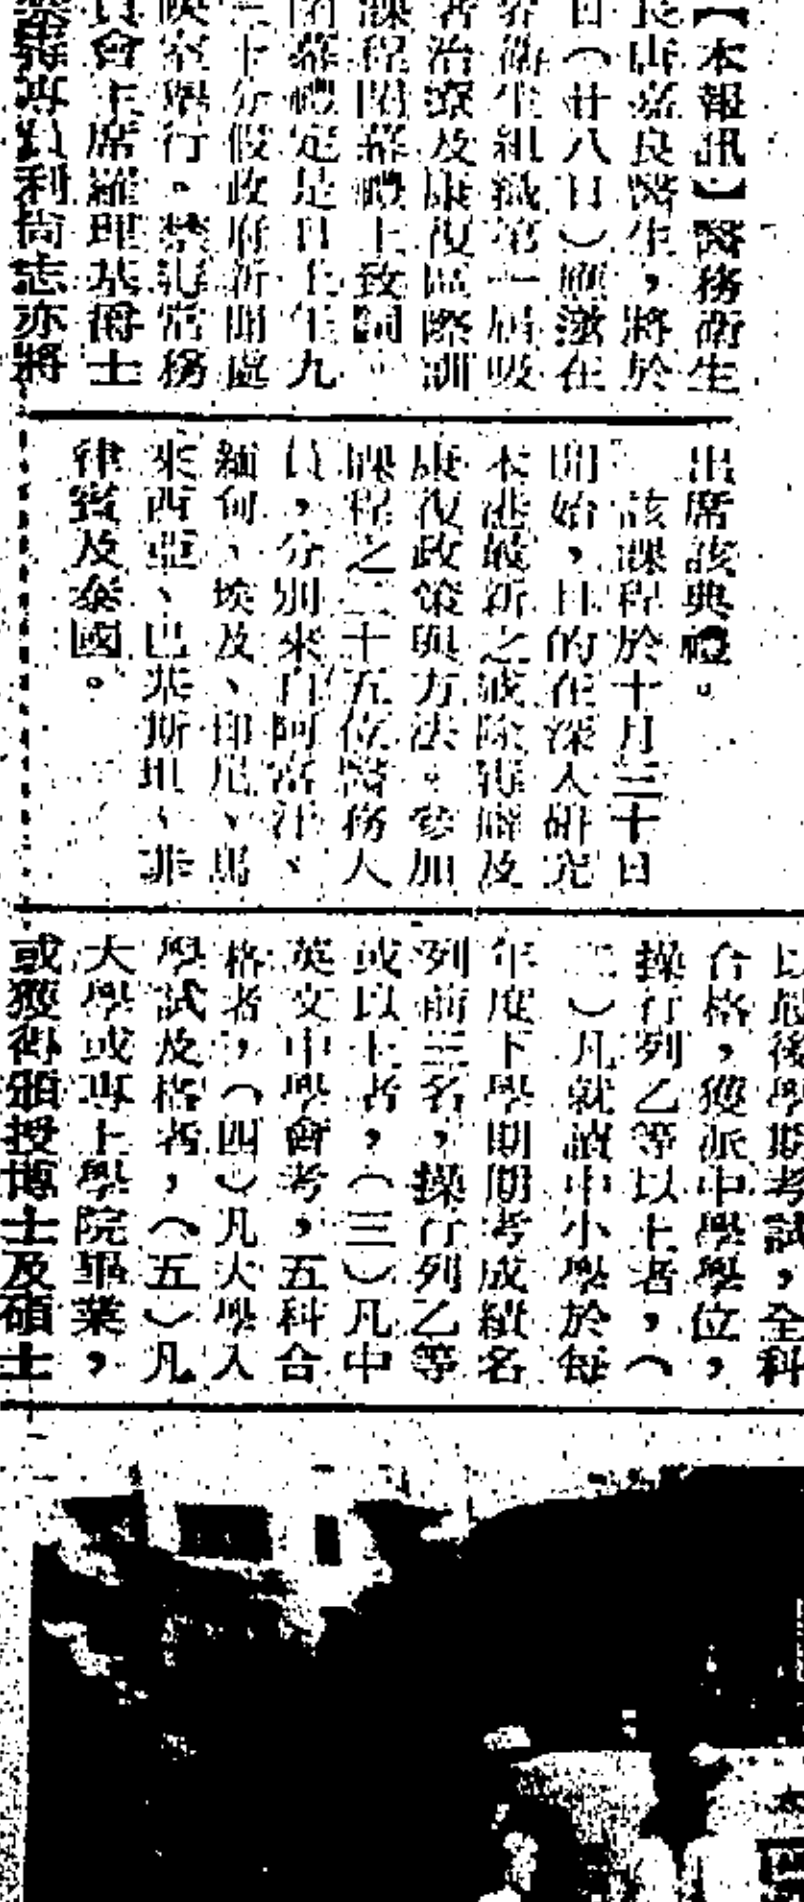 【本報訊】醫務衞生
長唐嘉良醫生，將於
日（廿八日）應邀在
界衞生組織第一屆吸
者治療及康復區際訓
課程閉幕禮上致詞。
閉幕禮定是日上午九
三十分假政府新聞處
映室舉行。禁毒常務
員會主席羅理基博士
專員利尚志亦將
出席該典禮。
該課程於十月三十日
開始，目的在深入研究
本港最新之戒除毒癮及
康復政策與方法。參加
課程之二十五位醫務人
員，分別來自阿富汗、
緬甸、埃及、印尼、馬
來西亞、巴基斯坦、菲
律賓及泰國。
以最後學期考試，全科
合格，獲派中學學位，
操行列乙等以上者，（
二）凡就讀中小學於每
年度下學期期考成績名
列前三名，操行列乙等
或以上者，（三）凡中
英文中學會考，五科合
格者，（四）凡大學入
學試及格者，（五）凡
大學或專上學院畢業，
或獲得頒授博士及碩士